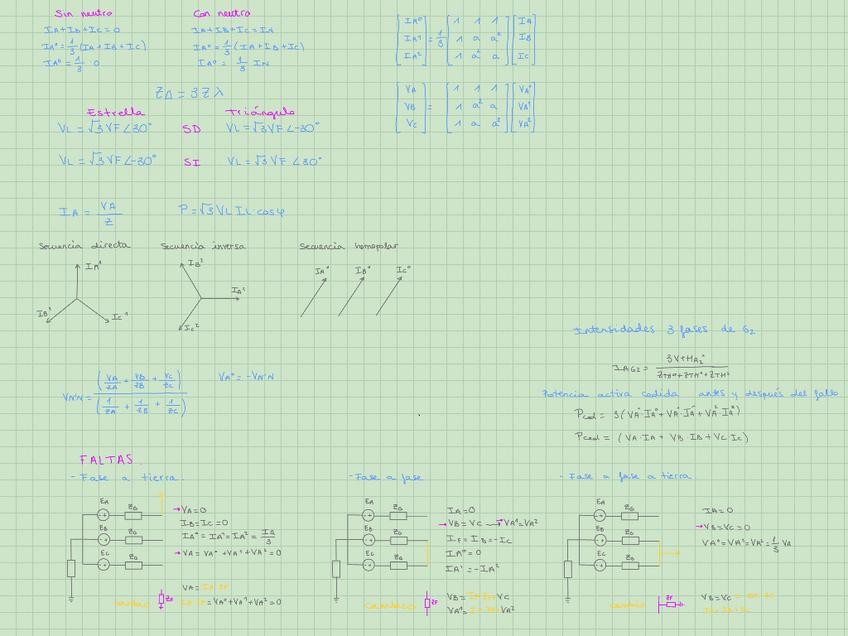 Sin neutro
IA+IB+IC=0
IA⁰=1/3(IA+IB+IC)
IA⁰=1/3·0
Con neutro
IA+IB+IC=IN
IA⁰=1/3(IA+IB+IC)
IA⁰=1/3 IN
[IA⁰ IA¹ IA²]=1/3[1 1 1; 1 a a²; 1 a² a][IA IB IC]
[VA VB VC]=[1 1 1; 1 a² a; 1 a a²][VA⁰ VA¹ VA²]
ZΔ=3Zλ
Estrella
Triángulo
VL=√3VF∠30° SD VL=√3VF∠-30°
VL=√3VF∠-30° SI VL=√3VF∠30°
IA=VA/Z
P=√3VL IL·cosφ
Secuencia directa
IA¹
IB¹
IC¹
Secuencia inversa
IB²
IA²
IC²
Secuencia homopolar
IA⁰ IB⁰ IC⁰
VN'N=(VA/ZA+VB/ZB+VC/ZC)/(1/ZA+1/ZB+1/ZC)
VA⁰=-VN'N
Intensidades 3 fases de G2
Potencia activa cedida antes y después del fallo
Pced=3(VA⁰·IA⁰+VA¹·IA¹+VA²·IA²)
Pced=(VA·IA+VB·IB+VC IC)
FALTAS
-Fase a tierra
EA ZG
EB ZG
EC ZG
→VA=0
IB=IC=0
IA⁰=IA¹=IA²=IA/3
→VA=VA⁰+VA¹+VA²=0
cambio
ZF
VA=IA·ZF
IA·ZF=VA⁰+VA¹+VA²=0
-Fase a fase
EA ZG
EB ZG
EC ZG
IA=0
→VB=VC→VA¹=VA²
IF=IB=-IC
IA⁰=0
IA¹=-IA²
cambio
ZF
-Fase a fase a tierra
EA ZG
EB ZG
EC ZG
IA=0
→VB=VC=0
VA⁰=VA¹=VA²=1/3 VA
cambio
ZF